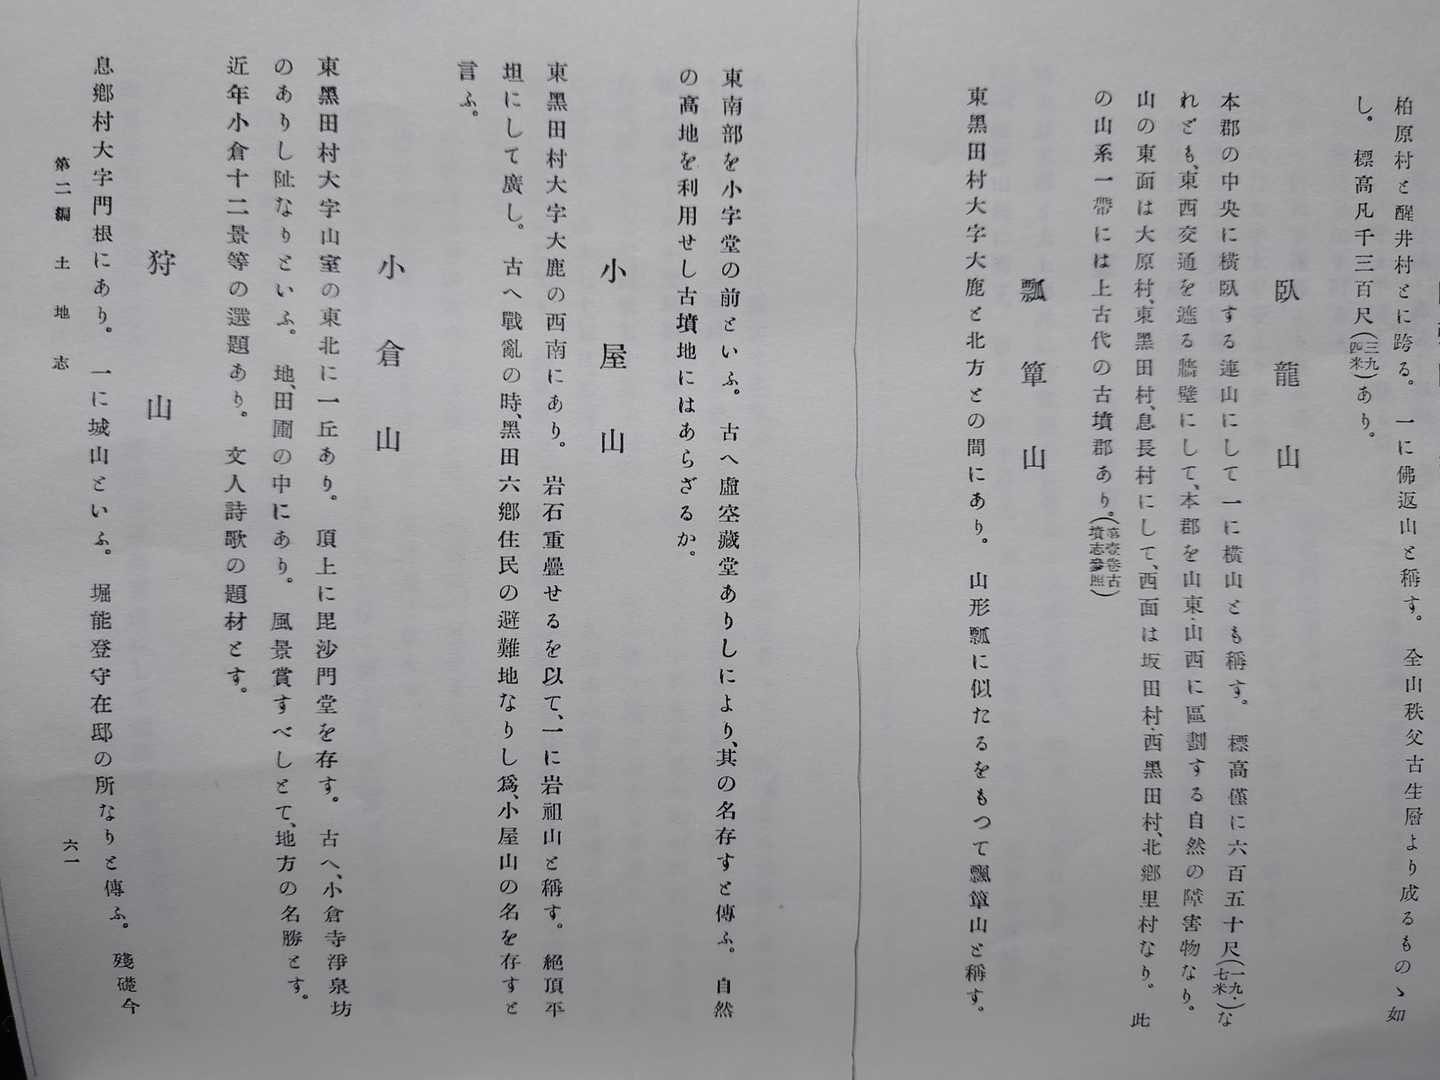 柏原村と醒井村とに跨る。一に佛返山と稱す。全山秩父古生層より成るものゝ如
し。標高凡千三百尺(三九四米)あり。
臥龍山
本郡の中央に橫臥する連山にして一に橫山とも稱す。標高僅に六百五十尺(一九七米)な
れども、東西交通を遮る牆壁にして、本郡を山東・山西に區劃する自然の障害物なり。
山の東面は大原村、東黑田村、息長村にして、西面は坂田村・西黑田村、北鄕里村なり。此
の山系一帶には上古代の古墳郡あり。(第壹卷古墳志參照)
瓢簞山
東黑田村大字大鹿と北方との間にあり。山形瓢に似たるをもつて瓢簞山と稱す。
東南部を小字堂の前といふ。古へ虛空藏堂ありしにより、其の名存すと傳ふ。自然
の高地を利用せし古墳地にはあらざるか。
小屋山
東黑田村大字大鹿の西南にあり。岩石重疊せるを以て、一に岩祖山と稱す。絕頂平
坦にして廣し。古へ戰亂の時、黑田六鄕住民の避難地なりし爲、小屋山の名を存すと
言ふ。
小倉山
東黑田村大字山室の東北に一丘あり。頂上に毘沙門堂を存す。古へ、小倉寺淨泉坊
のありし阯なりといふ。地、田圃の中にあり。風景賞すべしとて、地方の名勝とす。
近年小倉十二景等の選題あり。文人詩歌の題材とす。
狩山
息鄕村大字門根にあり。一に城山といふ。堀能登守在邸の所なりと傳ふ。殘礎今
第二編 土地志
六一